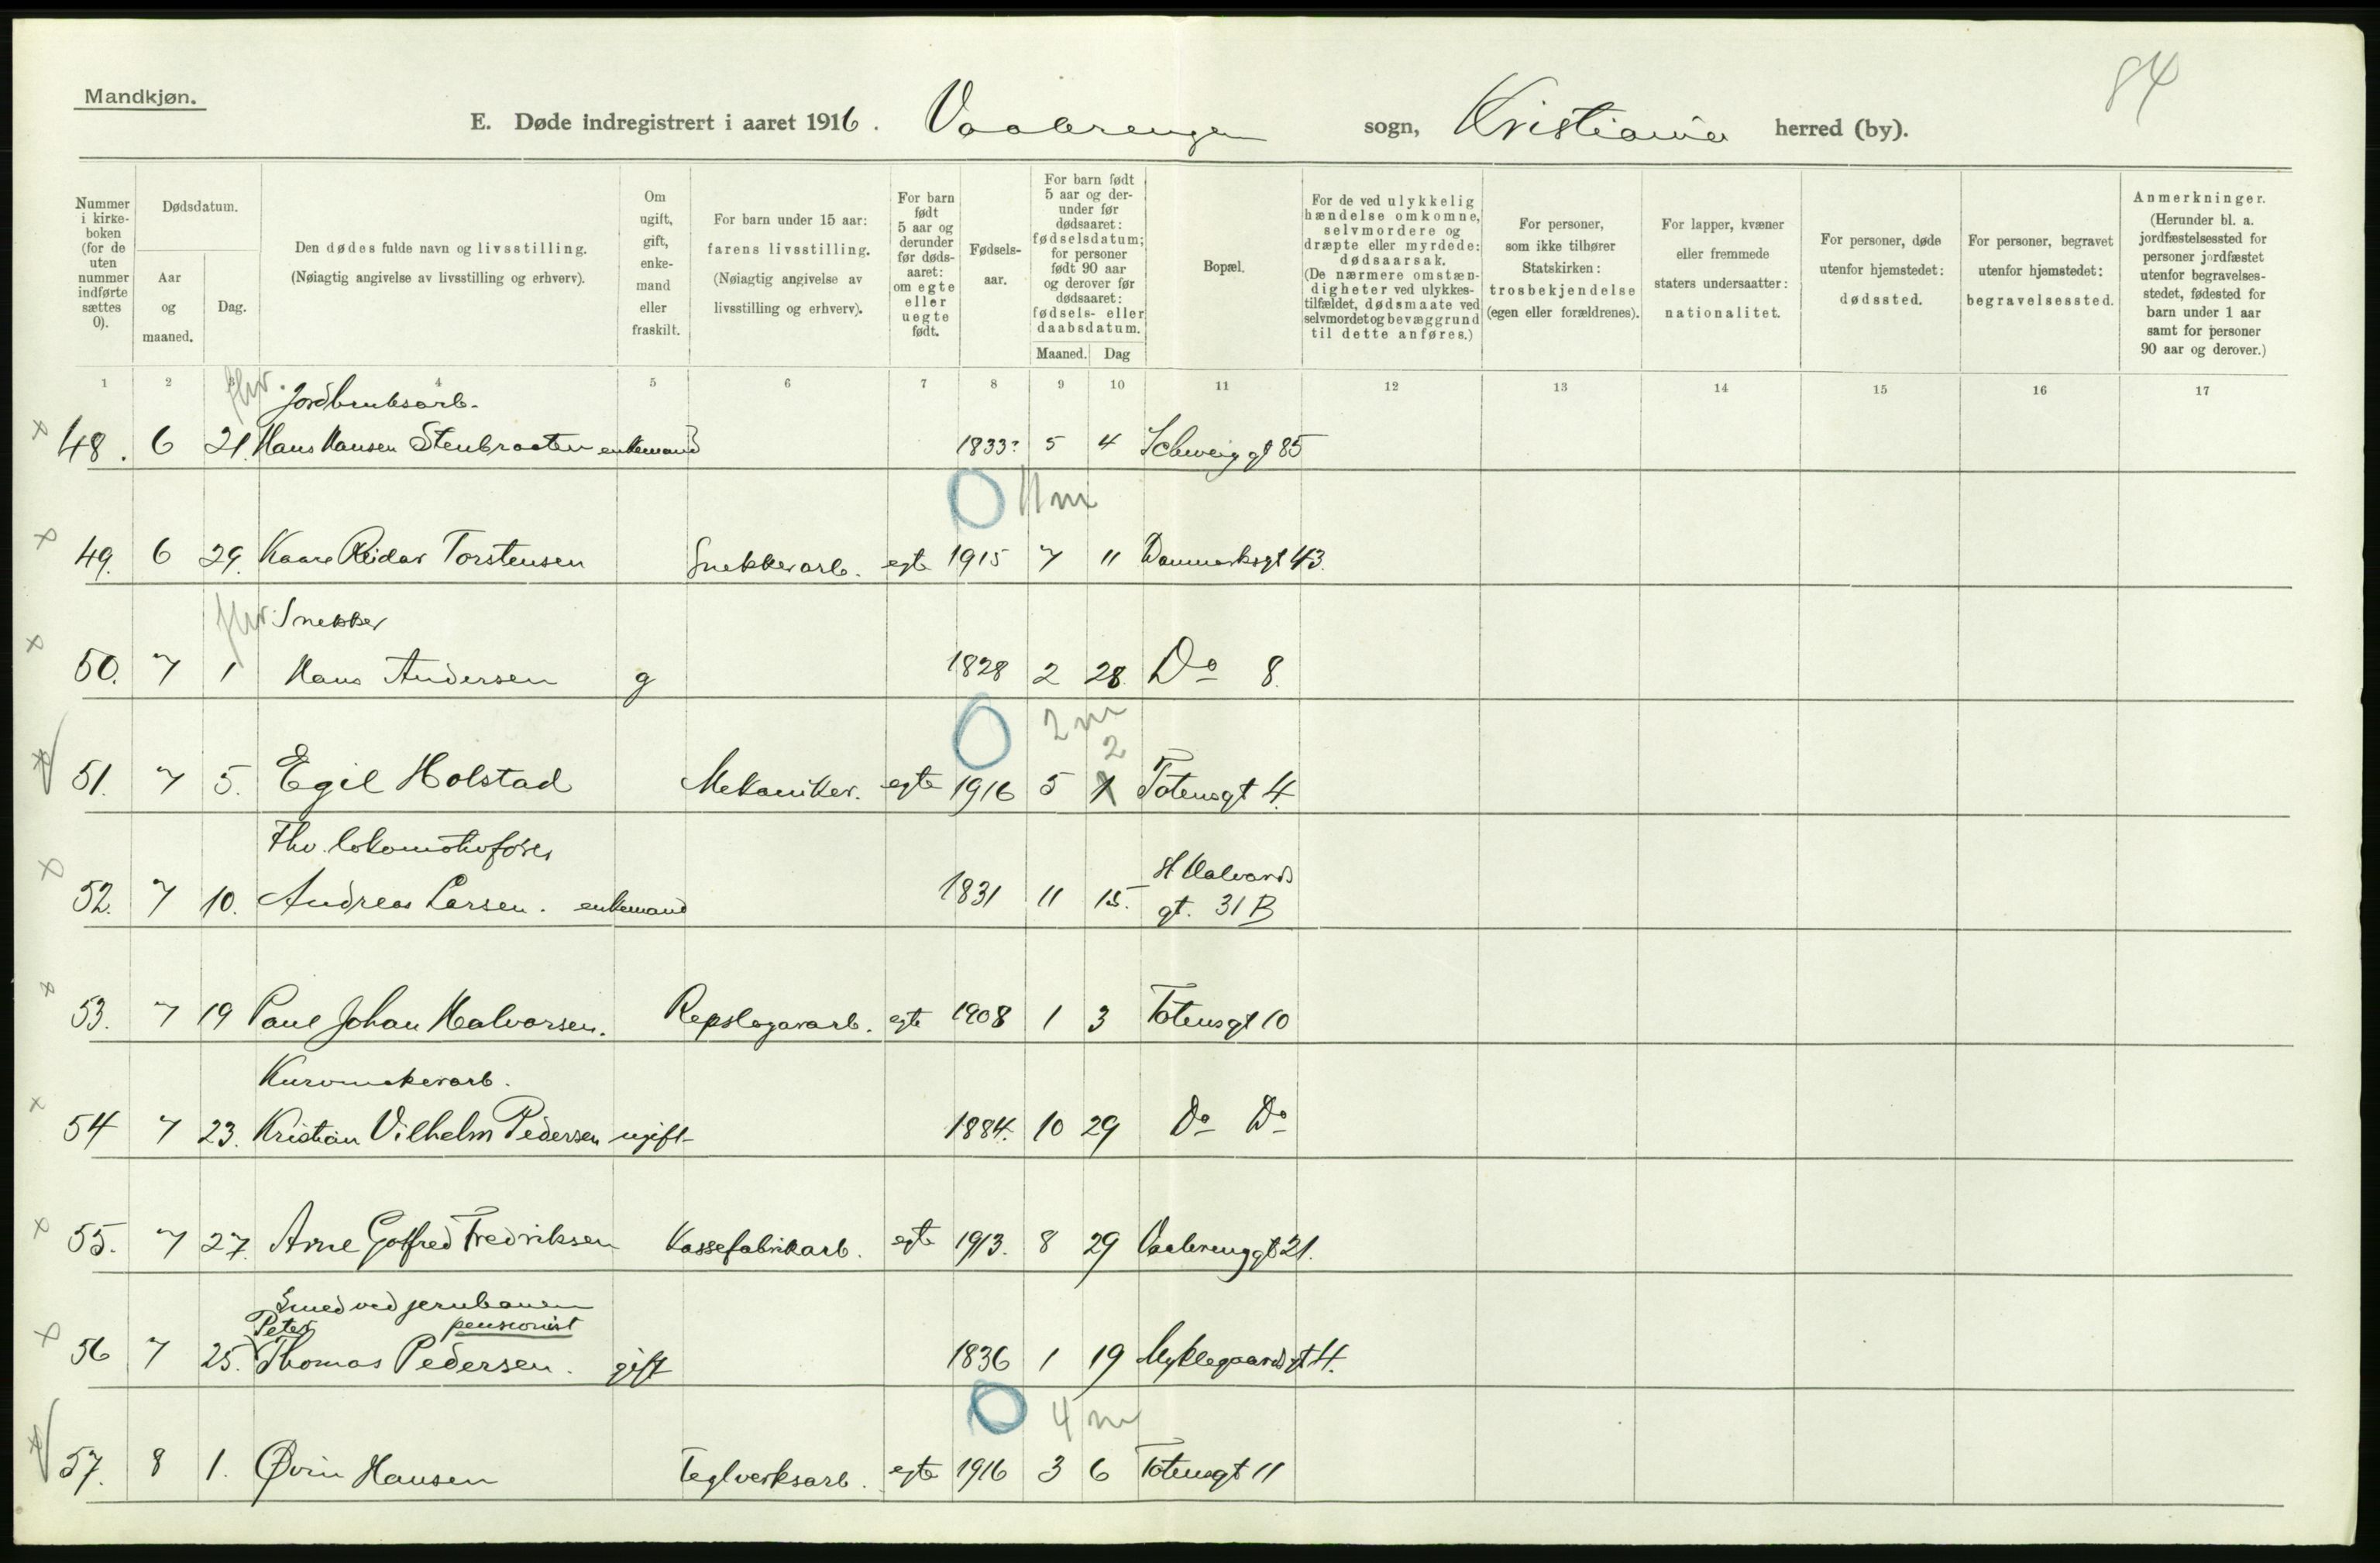 Mandkjøn.
84
E. Døde indregistrert i aaret 1916. Vaalerengen sogn, Kristiania herred (by).
Nummer i kirke-boken (for de uten nummer indførte sættes 0).
Dødsdatum.
Aar og maaned.
Dag.
Den dødes fulde navn og livsstilling. (Nøiagtig angivelse av livsstilling og erhverv).
Om ugift, gift, enke-mand eller fraskilt.
For barn under 15 aar: farens livsstilling. (Nøiagtig angivelse av livsstilling og erhverv).
For barn født 5 aar og derunder før døds-aaret: om egte eller uegte født.
Fødsels-aar.
For barn født 5 aar og der-under før dødsaaret: fødselsdatum; for personer født 90 aar og derover før dødsaaret: fødsels- eller daabsdatum.
Maaned. Dag
Bopæl.
For de ved ulykkelig hændelse omkomne, selvmordere og dræpte eller myrdede: dødsaarsak. (De nærmere omstæn-digheter ved ulykkes-tilfældet, dødsmaate ved selvmordet og bevæggrund til dette anføres.)
For personer, som ikke tilhører Statskirken: trosbekjendelse (egen eller forældrenes).
For lapper, kvæner eller fremmede staters undersaatter: nationalitet.
For personer, døde utenfor hjemstedet: dødssted.
For personer, begravet utenfor hjemstedet: begravelsessted.
Anmerkninger. (Herunder bl. a. jordfæstelsessted for personer jordfæstet utenfor begravelses-stedet, fødested for barn under 1 aar samt for personer 90 aar og derover.)
1 2 3 4 5 6 7 8 9 10 11 12 13 14 15 16 17
fhv. Jordbruksarb.
x 48. 6 21. Hans Hansen Stenbraaten enkemand 1833? 5 4 Schweiggt 85
0 11 m
x 49. 6 29. Kaare Reidar Torstensen Snekkerarb. egte 1915 7 11 Danmarksgt 43.
fhv. Snekker
x 50. 7 1 Hans Andersen g 1828 2 28. Do 8.
0 2 m
2
x 51. 7 5. Egil Holstad Mekaniker. egte 1916 5 1 Totensgt 4.
Fhv. lokomotivfører
x 52. 7 10. Andreas Larsen. enkemand 1831 11 15. H Halvards gt. 31 B
x 53. 7 19 Paul Johan Halvorsen. Repslagerarb. egte 1908 1 3 Totensgt 10
Kurvmakerarb.
x 54 7 23. Kristian Vilhelm Pedersen ugift 1884. 10 29 Do Do
x 55. 7 27. Arne Gotfred Fredriksen Kassefabrikarb. egte 1913. 8 29 Vaalerenggt 21.
Smed ved jernbanen
Peter pensionist
x 56 7 25. Thomas Pedersen. gift 1836 1 19 Myklegaardsgt 4.
0 4 m
x 57. 8 1. Øvin Hansen Teglverksarb. egte 1916 3 6 Totensgt 11